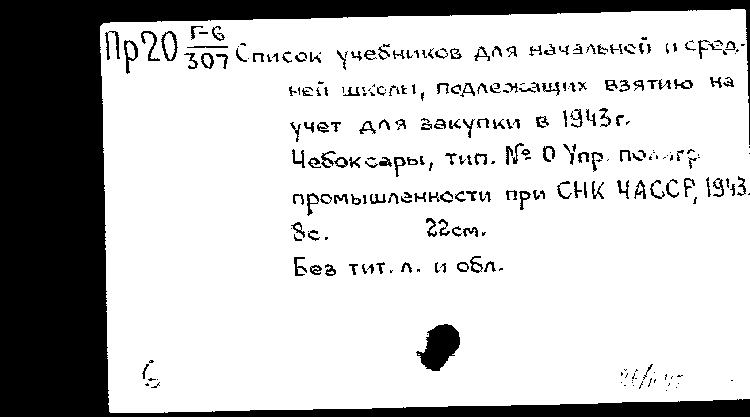 Пр20 Г-6/307 Список учебников для начальной и сред-
ней школы, подлежащих взятию на
учет для закупки в 1943г.
Чебоксары, тип. № 0 Упр. полигр
промышленности при СНК ЧАССР, 1943.
8с. 22см.
Без тит. л. и обл.
6